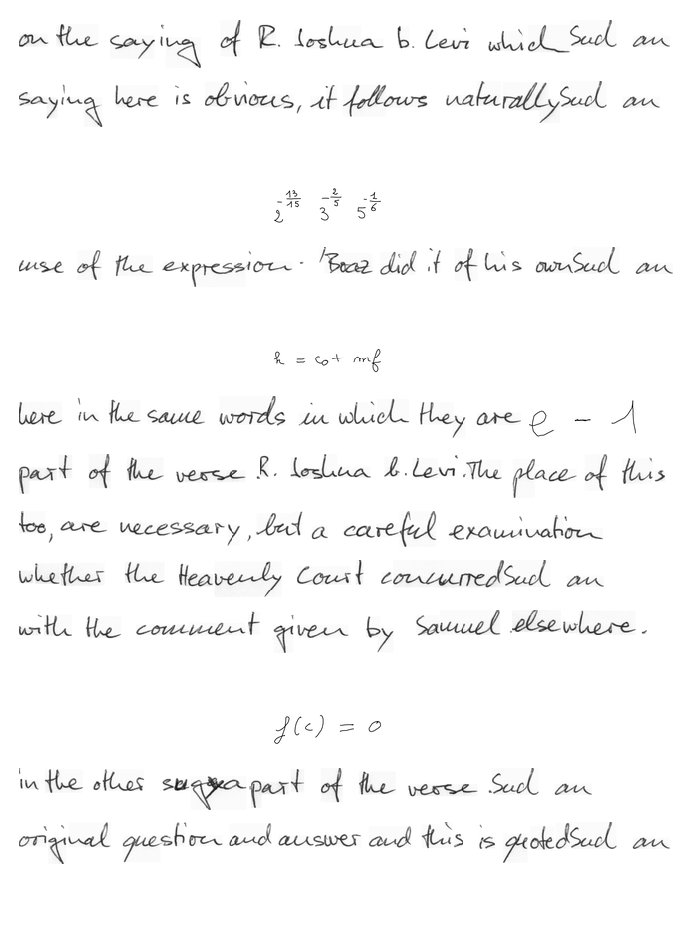 on the saying of R. Joshua b. Levi which Such an
saying here is obvious, it follows naturally Such an
2^{-\frac{13}{15}} 3^{-\frac{2}{5}} 5^{-\frac{1}{6}}
use of the expression. 'Boaz did it of his own Such an
h = co + mf
here in the same words in which they are e - 1
part of the verse R. Joshua b. Levi. The place of this
too, are necessary, but a careful examination
whether the Heavenly Court concurred Such an
with the comment given by Samuel elsewhere.
f(c) = 0
in the other part of the verse Such an
original question and answer and this is quoted Such an